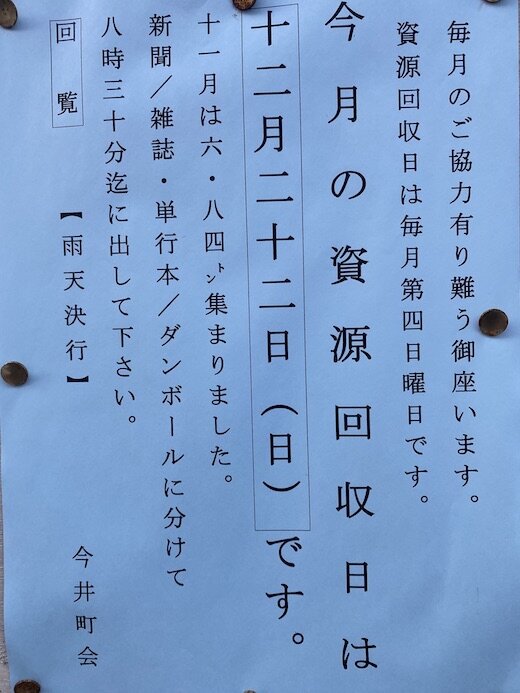 毎月のご協力有り難う御座います。
資源回収日は毎月第四日曜日です。
今月の資源回収日は
十二月二十二日（日）です。
十一月は六・八四㌧集まりました。
新聞／雑誌・単行本／ダンボールに分けて
八時三十分迄に出して下さい。
回覧
【雨天決行】
今井町会